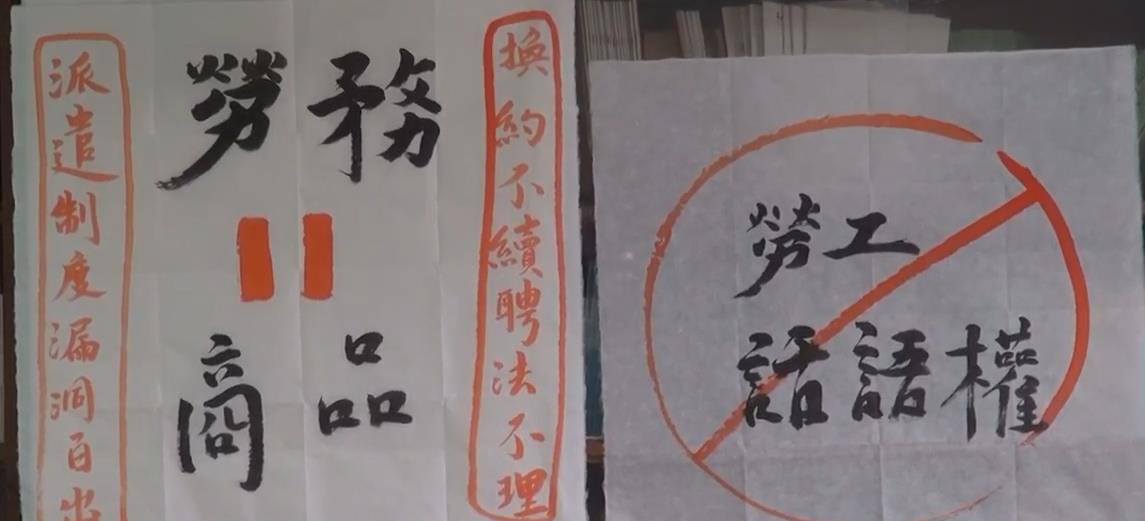 換約不續聘法不理
勞務
商品
派遣制度漏洞百出
勞工
話語權